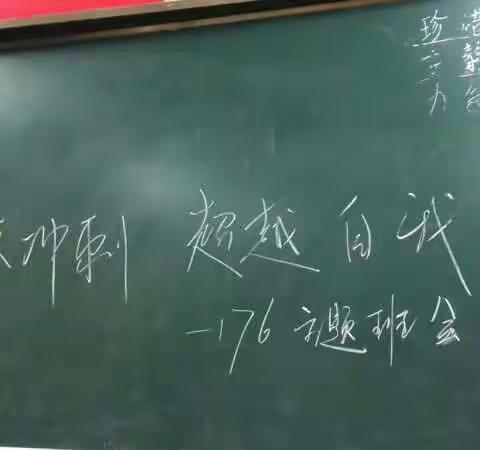 冲刺 超越自我
-176 主题班会
珍惜